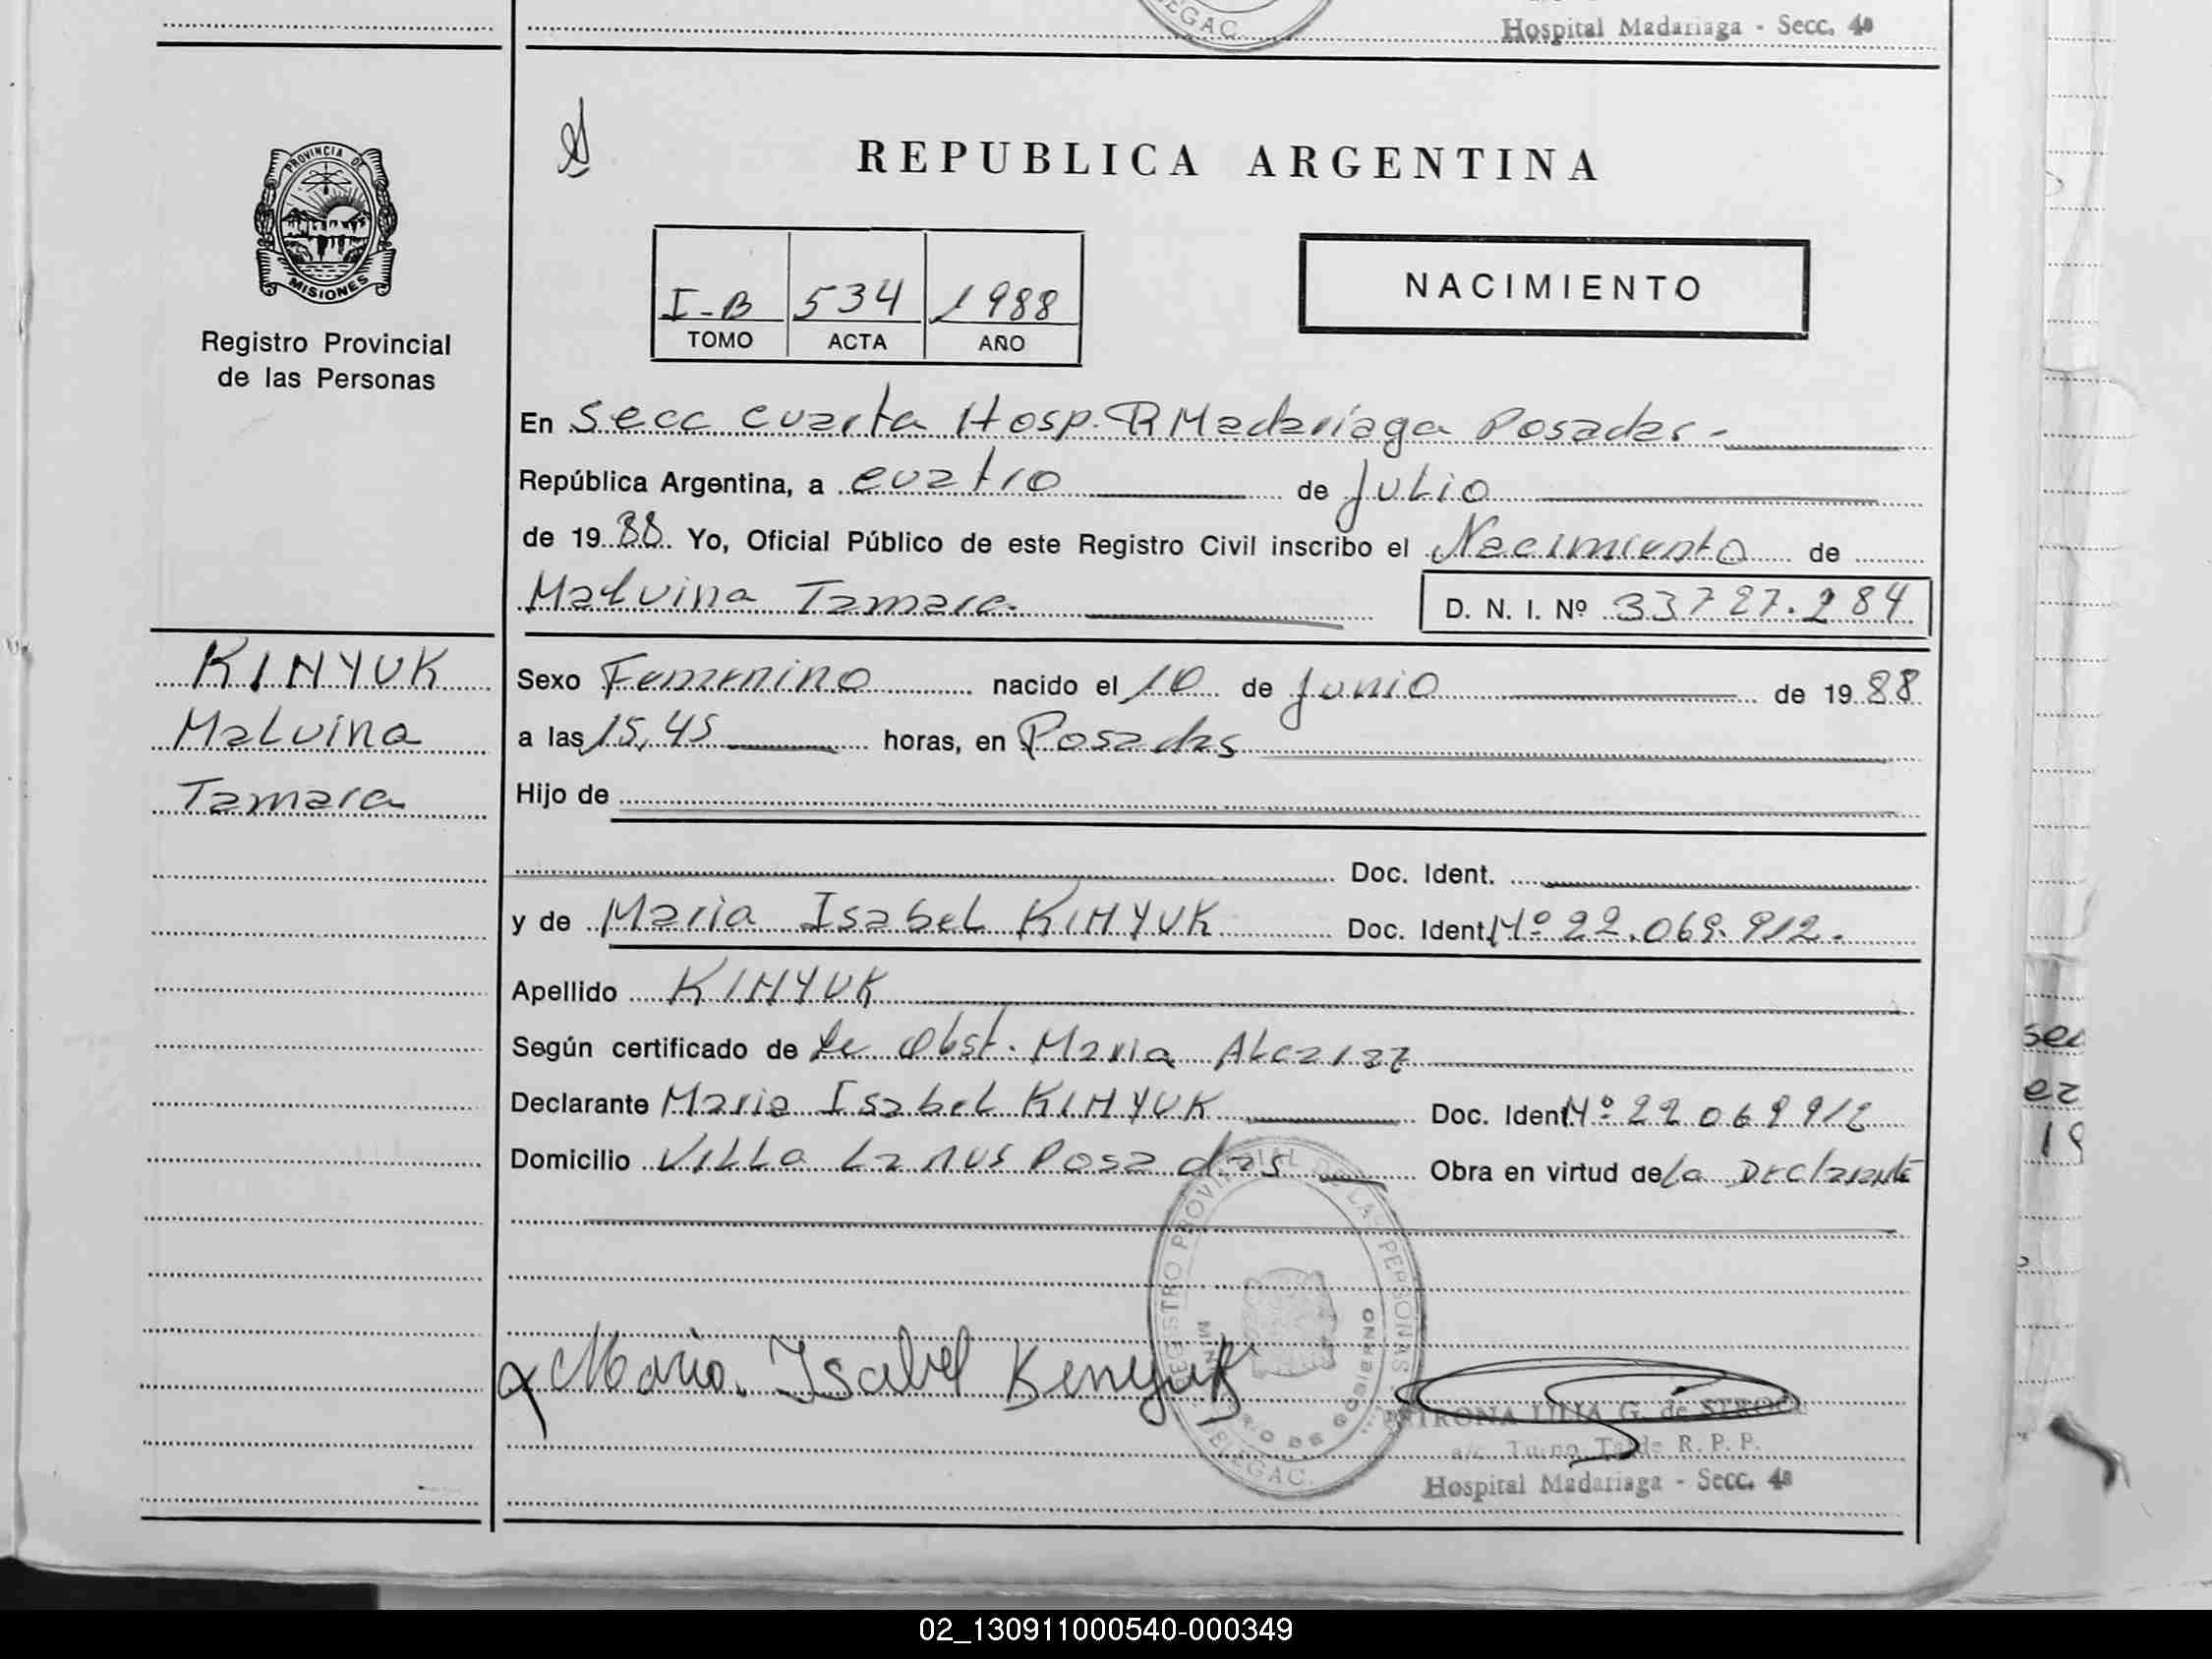 EGAC.
Hospital Madariaga - Secc. 4ª
PROVINCIA DE
MISIONES
Registro Provincial
de las Personas
REPUBLICA ARGENTINA
I-B 534 1988
TOMO ACTA AÑO
NACIMIENTO
En Secc cuarta Hosp. R Madariaga Posadas-
República Argentina, a cuatro de Julio
de 1988 Yo, Oficial Público de este Registro Civil inscribo el Nacimiento de
Malvina Tamara.
D. N. I. Nº 33727.284
KINYUK
Malvina
Tamara
Sexo Femenino nacido el 10 de Junio de 1988
a las 15,45 horas, en Posadas
Hijo de
Doc. Ident.
y de Maria Isabel KINYUK Doc. Ident. Nº 22.069.912.
Apellido KINYUK
Según certificado de la Obst. Maria Alcaraz
Declarante Maria Isabel KINYUK Doc. Ident. Nº 22069912
Domicilio Villa Lanus Posadas Obra en virtud de la Declarante
REGISTRO PROVINCIAL DE LAS PERSONAS
MINISTERIO DE GOBIERNO
DELEGAC.
Maria Isabel Kenyuk
LILIA G. de
a/c. Turno Tarde R. P. P.
Hospital Madariaga - Secc. 4ª
02_130911000540-000349